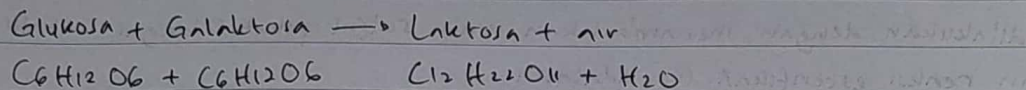 Glukosa + Galaktosa → Laktosa + air
C6H12O6 + C6H12O6 C12H22O11 + H2O